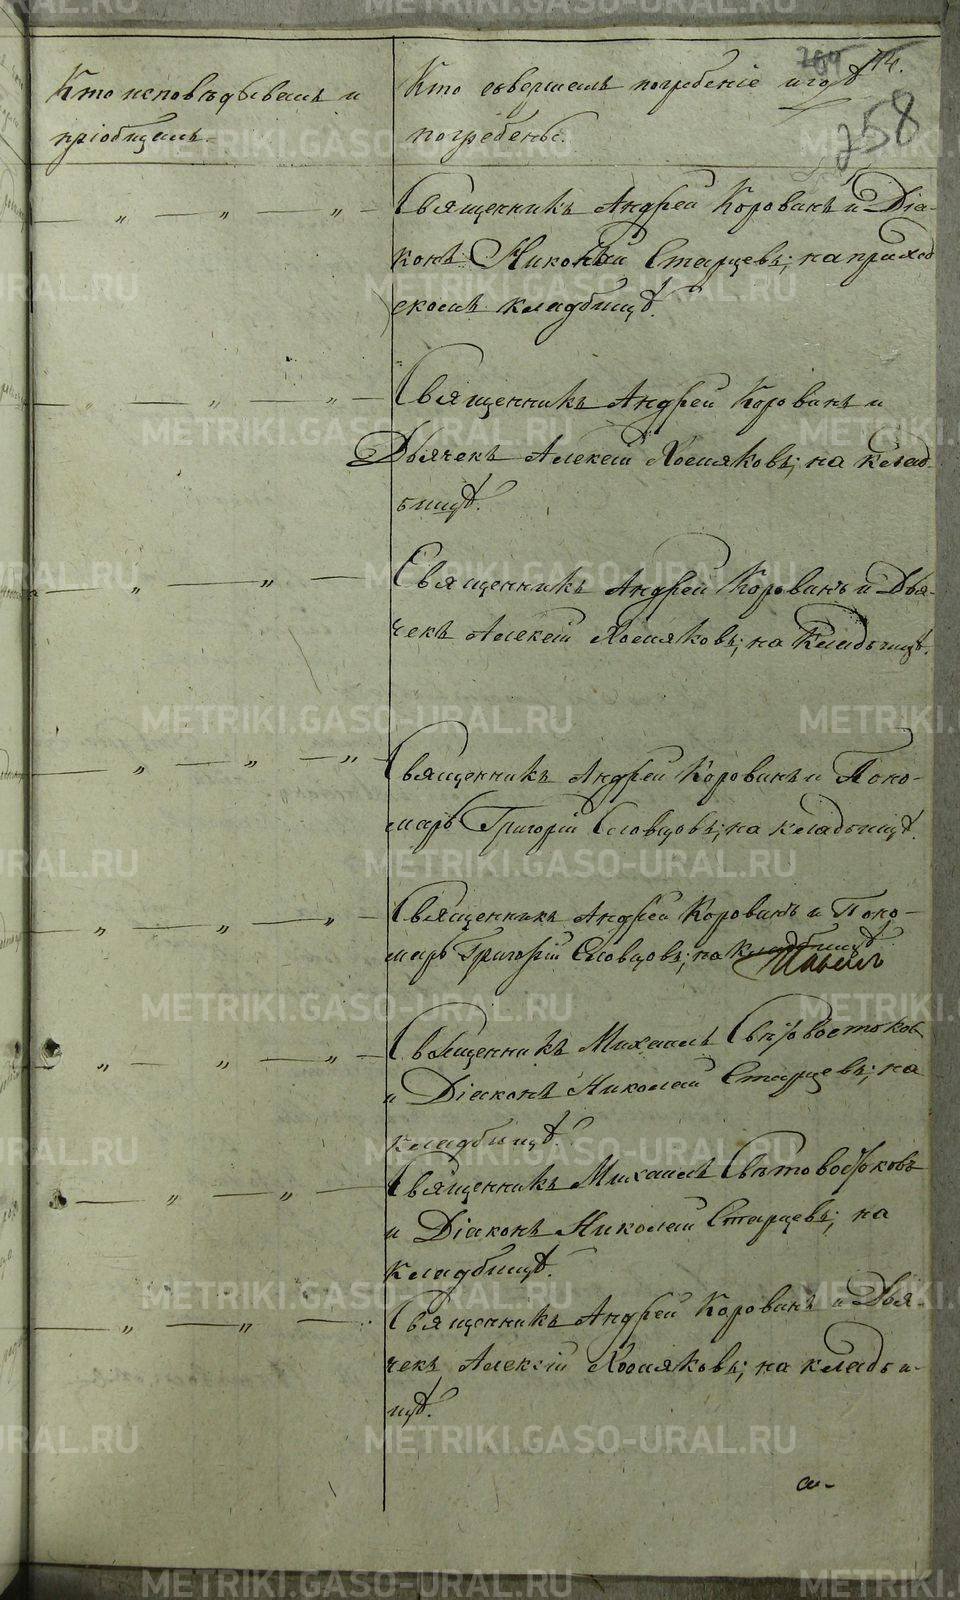 Кто исповѣдывалъ и
пріобщалъ.
Кто совершалъ погребеніе и гдѣ
погребены.
114.
258
Священникъ Андрей Коровинъ и Діа-
конъ Николай Старцевъ; на приход
скомъ кладбищѣ.
Священникъ Андрей Коровинъ и
Дьячекъ Алексій Хомяковъ; на клад-
бищѣ.
Священникъ Андрей Коровинъ и Дья-
чекъ Алексій Хомяковъ; на кладбищѣ.
Священникъ Андрей Коровинъ и Поно-
марь Григорій Словцовъ; на кладбищѣ.
Священникъ Андрей Коровинъ и Поно-
марь Григорій Словцовъ; на кладбищѣ
Священникъ Михаилъ Свѣтовостоковъ
и Діаконъ Николай Старцевъ; на
кладбищѣ.
Священникъ Михаилъ Свѣтовостоковъ
и Діаконъ Николай Старцевъ; на
кладбищѣ.
Священникъ Андрей Коровинъ и Дья-
чекъ Алексій Хомяковъ; на кладби-
щѣ.
METRIKI.GASO-URAL.RU